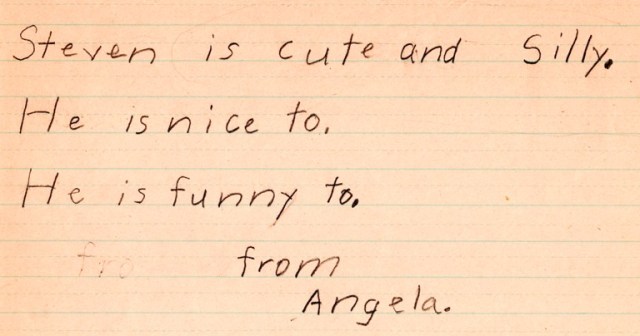 Steven is cute and Silly.
He is nice to.
He is funny to.
fro from
Angela.